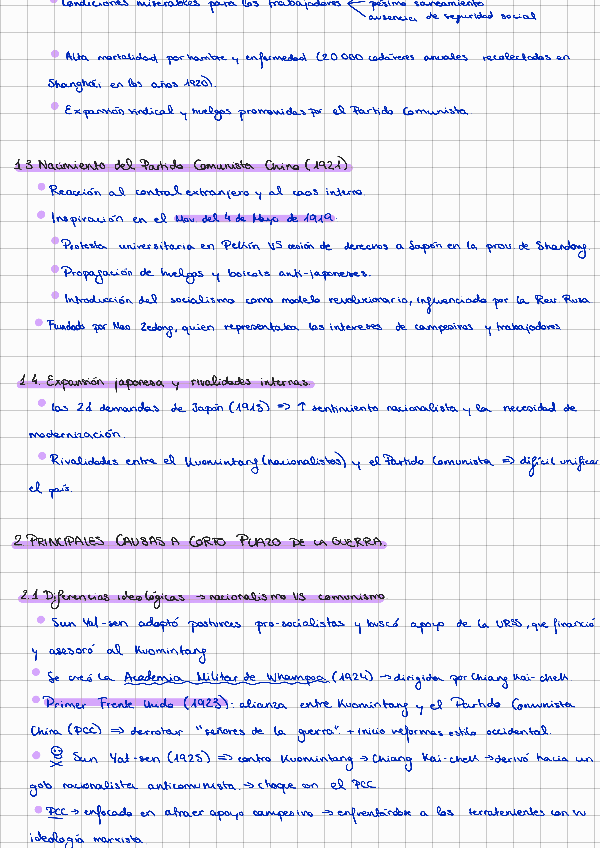 Condiciones miserables para los trabajadores pésimo saneamiento
ausencia de seguridad social
Alta mortalidad por hambre y enfermedad (20 000 cadáveres anuales recolectados en
Shanghái en los años 1920).
Expansión sindical y huelgas promovidas por el Partido Comunista.
1.3 Nacimiento del Partido Comunista Chino (1921)
Reacción al control extranjero y al caos interno.
Inspiración en el Mov. del 4 de Mayo de 1919.
Protesta universitaria en Pekín VS cesión de derechos a Japón en la prov. de Shandong.
Propagación de huelgas y boicots anti-japoneses.
Introducción del socialismo como modelo revolucionario, influenciado por la Rev. Rusa
Fundado por Mao Zedong, quien representaba los intereses de campesinos y trabajadores
1.4. Expansión japonesa y rivalidades internas.
Las 21 demandas de Japón (1915) => ↑ sentimiento nacionalista y la necesidad de
modernización.
Rivalidades entre el Kuomintang (nacionalistas) y el Partido Comunista => difícil unificar
el país.
2. PRINCIPALES CAUSAS A CORTO PLAZO DE LA GUERRA.
2.1 Diferencias ideológicas → nacionalismo VS comunismo
Sun Yat-sen adoptó posturas pro-socialistas y buscó apoyo de la URSS, que financió
y asesoró al Kuomintang
Se creó la Academia Militar de Whampoa (1924) → dirigida por Chiang Kai-chek
Primer Frente Unido (1923): alianza entre Kuomintang y el Partido Comunista
China (PCC) => derrotar "señores de la guerra" + inicio reformas estilo occidental.
Sun Yat-sen (1925) => contro Kuomintang → Chiang Kai-chek → derivó hacia un
gob nacionalista anticomunista. → choque con el PCC
PCC → enfocado en atraer apoyo campesino → enfrentándose a los terratenientes con su
ideología marxista